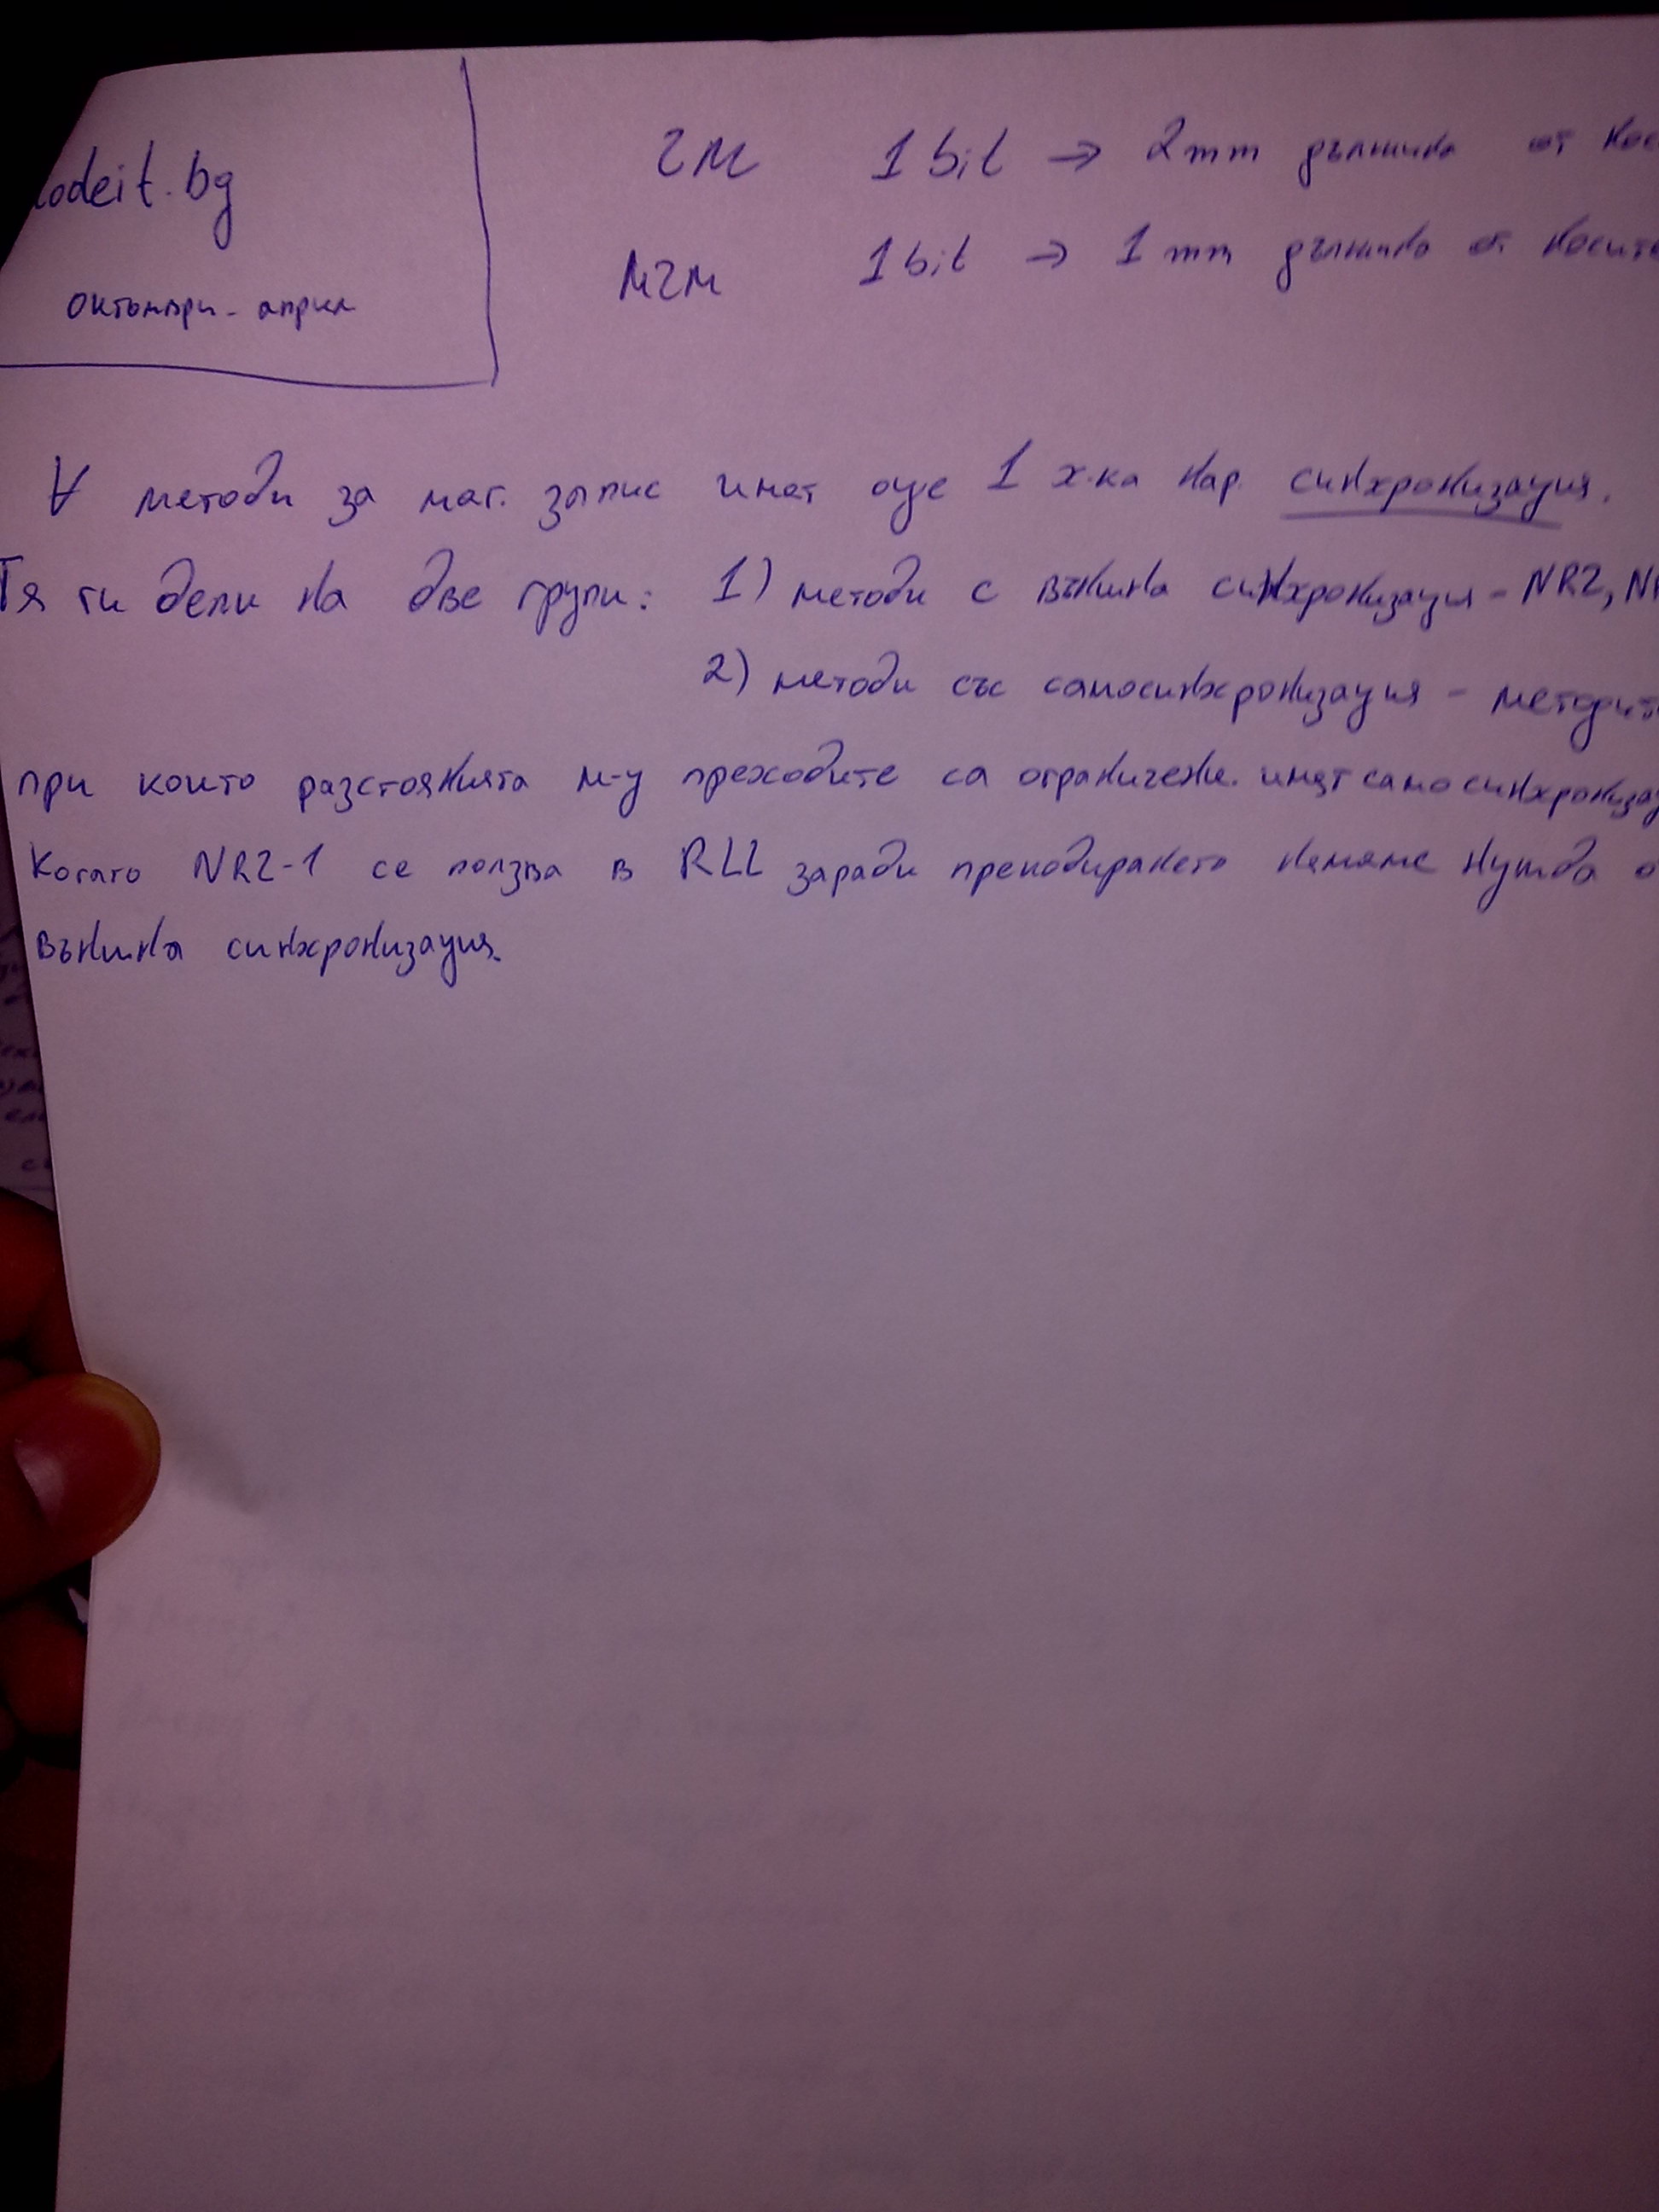 codeit.bg
октомври - април
ЧМ 1 bit → 2 mm дължина от нос
МЧМ 1 bit → 1 mm дължина от носите
∀ методи за маг. запис имат още 1 х-ка нар. синхронизация.
Тя ги дели на две групи: 1) методи с външна синхронизация - NRZ, NR
2) методи със самосинхронизация - методит
при които разстоянията м-у преходите са ограничени. имат самосинхронизац
Когато NRZ-1 се ползва в RLL заради прекодирането нямаме нужда о
външна синхронизация.